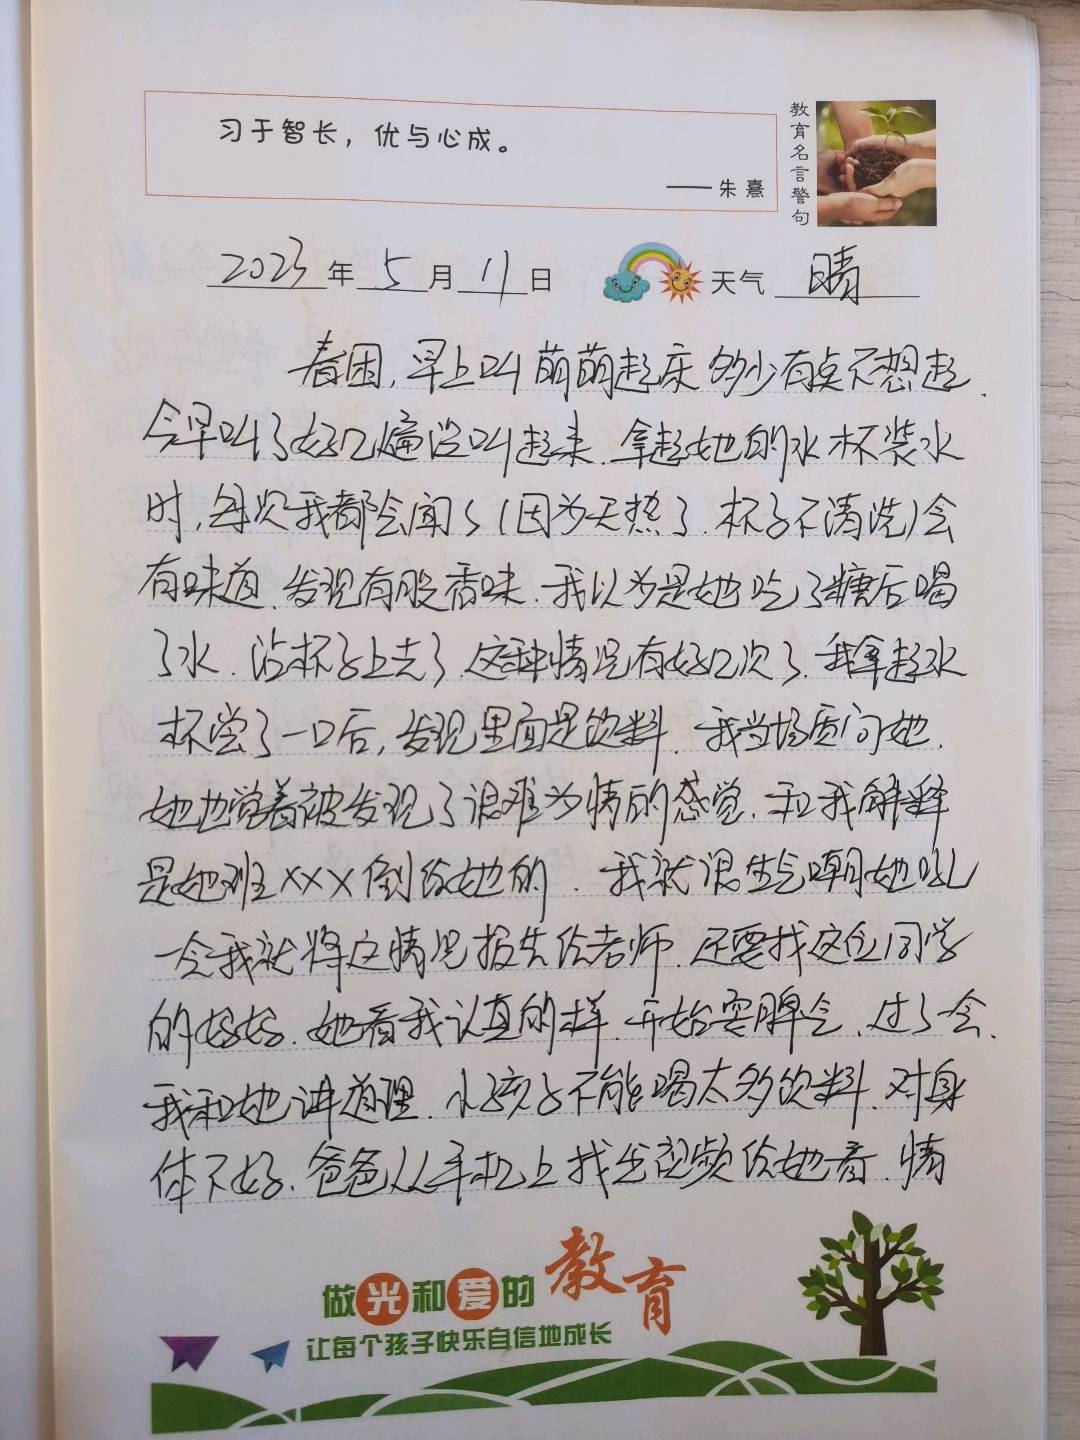 习于智长，优与心成。
——朱熹
教育名言警句
2023年5月11日 天气 晴
春困，早上叫萌萌起床多少有点不想起.
今早叫了好几遍没叫起来.拿起她的水杯装水
时，每次我都会闻了(因为天热了.杯子不清洗)会
有味道.发现有股香味.我以为是她吃了糖后喝
了水.沾杯子上去了.这种情况有好几次了.我拿起水
杯尝了一口后，发现里面是饮料.我当场质问她.
她也觉着被发现了很难为情的感觉.和我解释
是她班XXX倒给她的.我就很生气嘲她吼
一会我就将这情况报告给老师.还要找这位同学
的妈妈.她看我认真的样.开始耍脾气.过了会.
我和她讲道理.小孩子不能喝太多饮料.对身
体不好.爸爸从手机上找出视频给她看.情
做光和爱的教育
让每个孩子快乐自信地成长